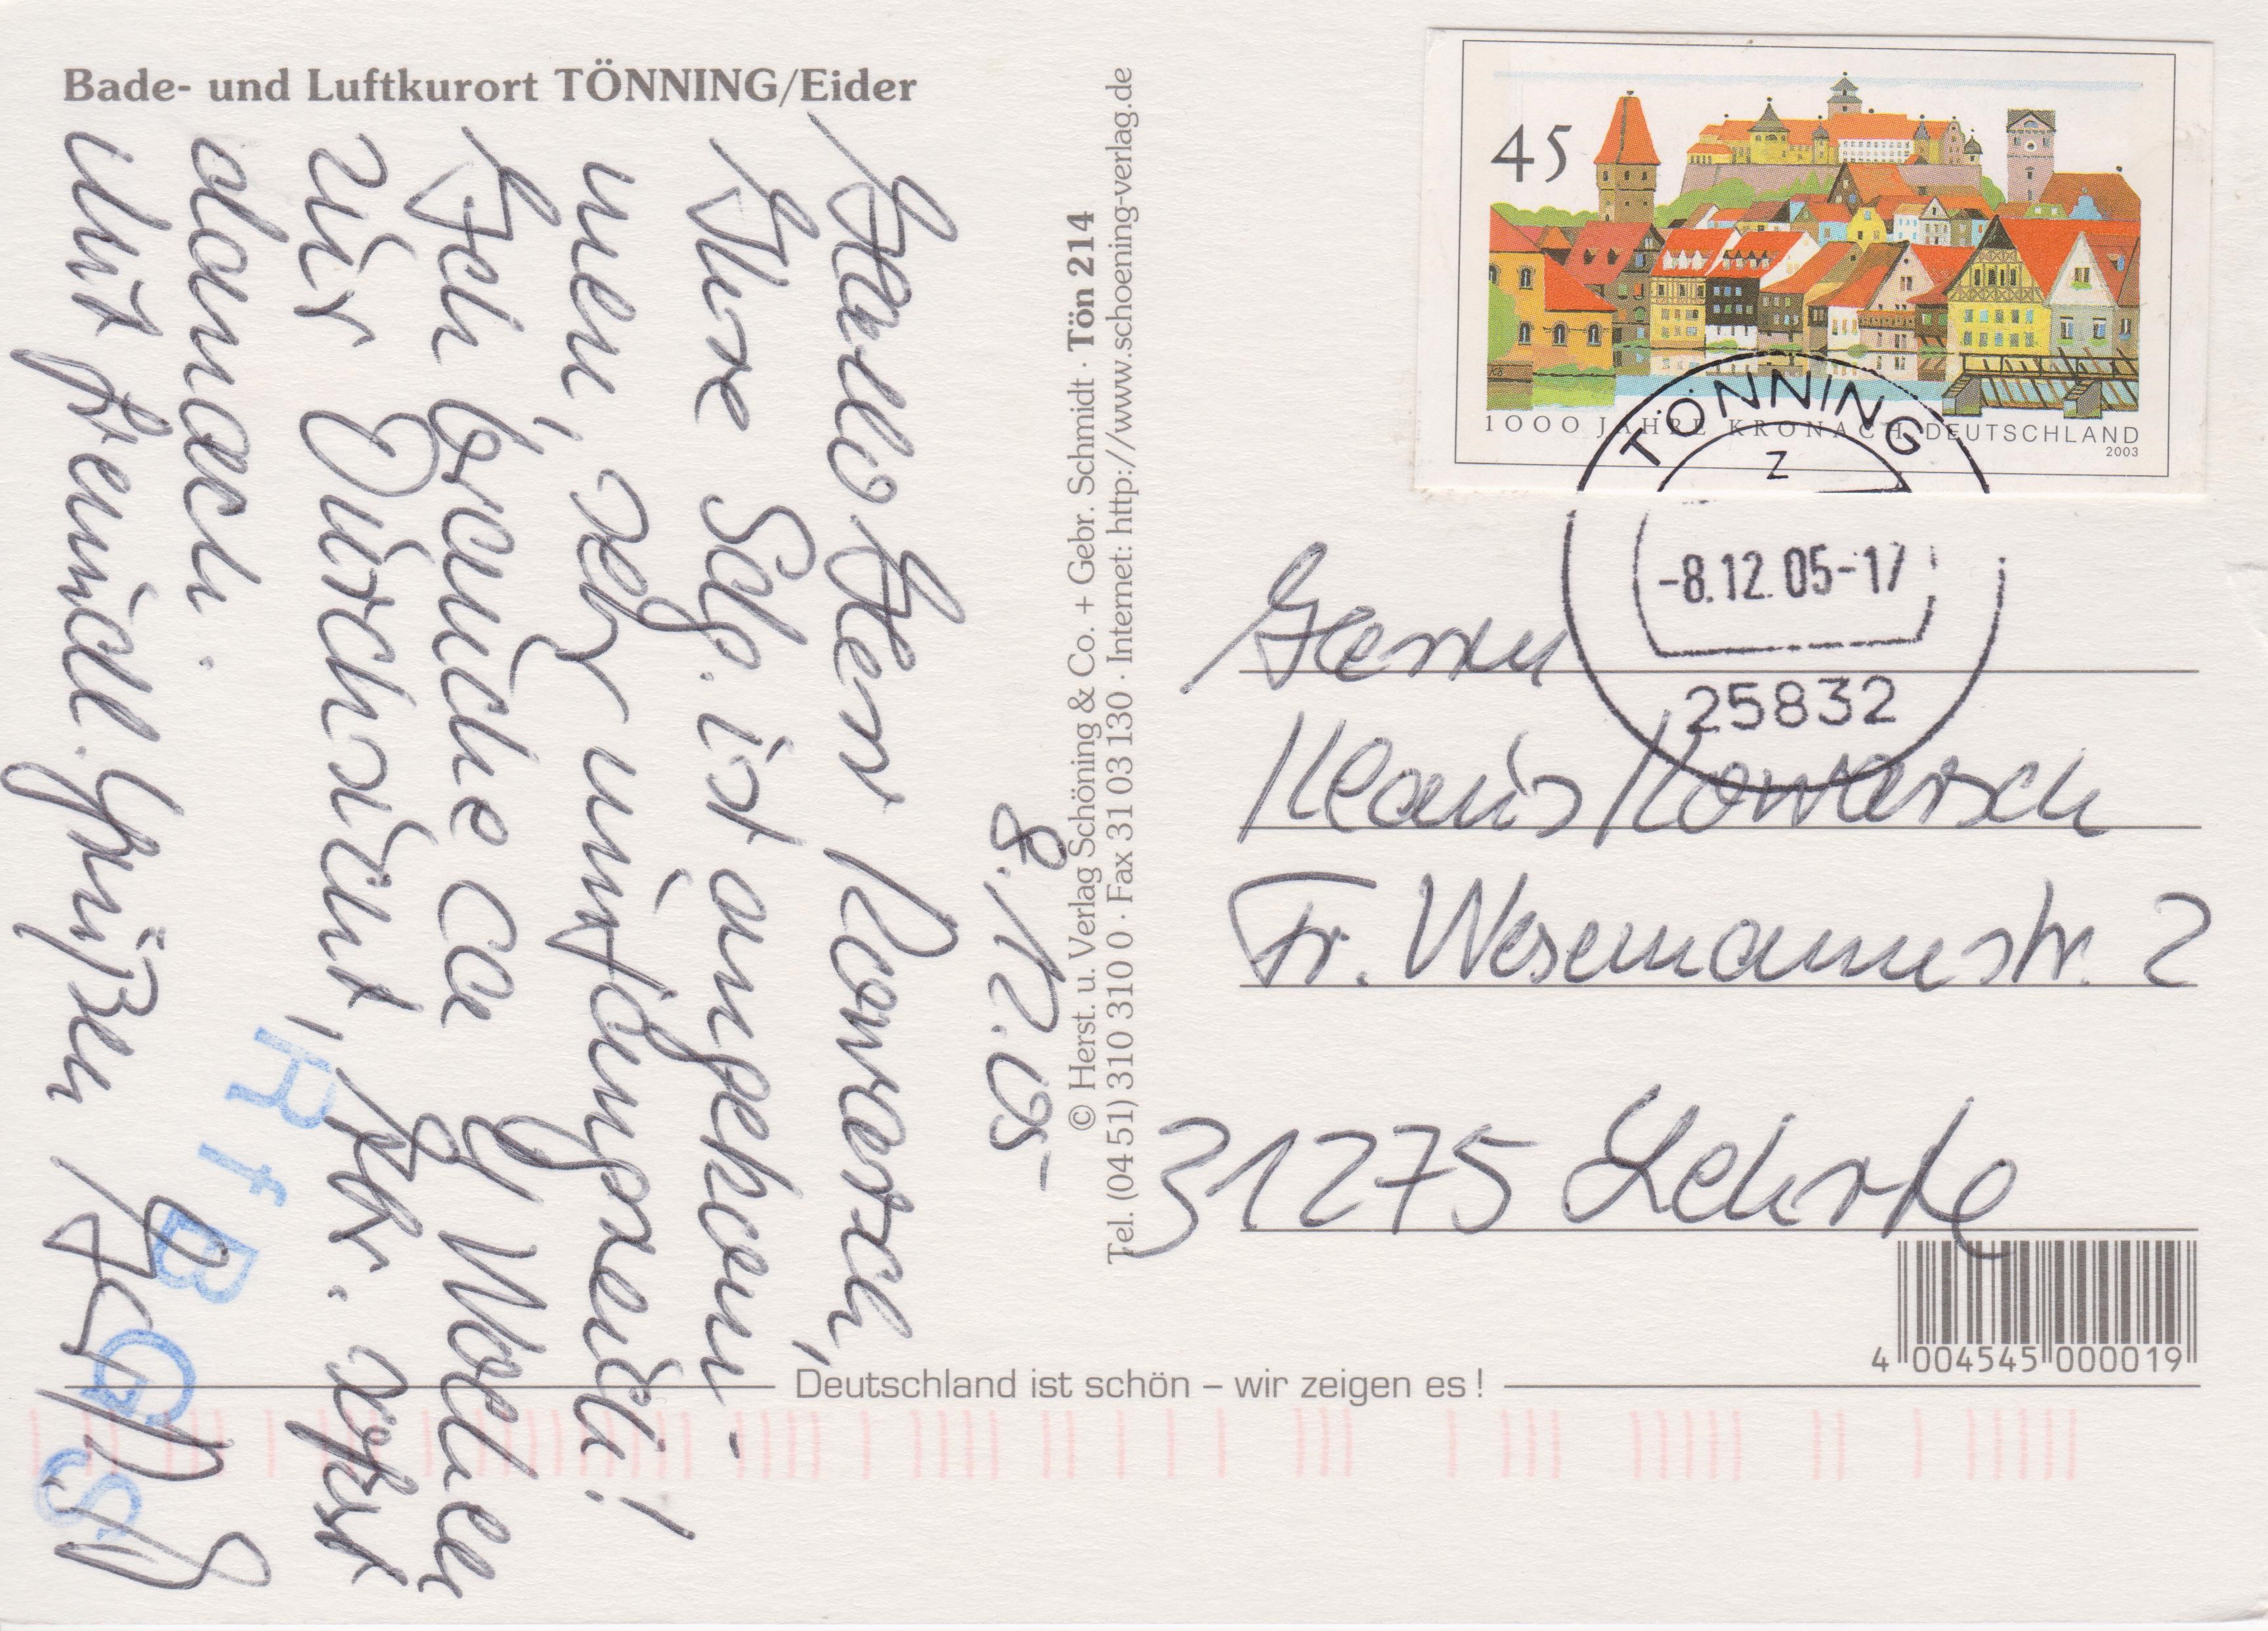 Bade- und Luftkurort TÖNNING/Eider
8.12.05-
Hallo Herr Kowarsch,
Ihre Sdg. ist angekom-
men, sehr umfangreich!
Ich brauche ca 4 Wochen
zur Durchsicht, Abr. erst
danach.
Mit freundl. Grüßen
© Herst. u. Verlag Schöning & Co. + Gebr. Schmidt · Tön 214
Tel. (04 51) 310 310 0 · Fax 31 03 130 · Internet: http://www.schoening-verlag.de
45
1000 JAHRE KRONACH DEUTSCHLAND
2003
TÖNNING
z
-8.12.05-17
25832
Herrn
Klaus Kowarsch
Fr. Wesemannstr. 2
31275 Lehrte
4 004545 000019
Deutschland ist schön – wir zeigen es !